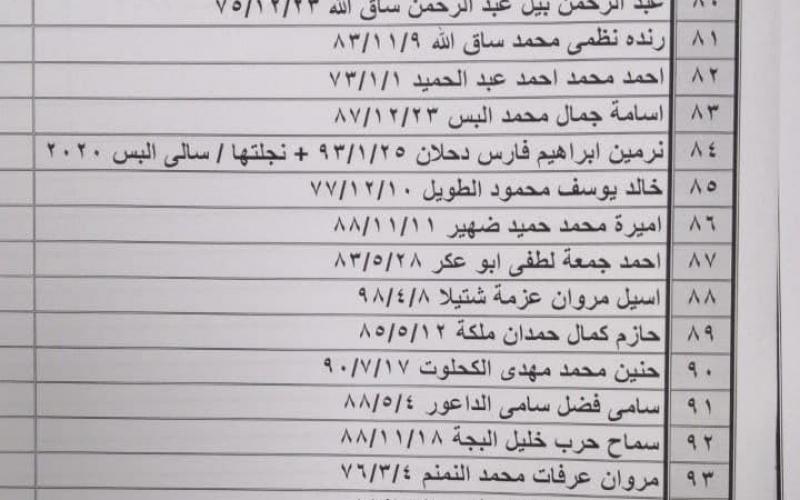 ٨٠ عبد الرحمن بيل عبد الرحمن ساق الله ٧٥/١٢/٢٣
٨١ رنده نظمى محمد ساق الله ٨٣/١١/٩
٨٢ احمد محمد احمد عبد الحميد ٧٣/١/١
٨٣ اسامة جمال محمد البس ٨٧/١٢/٢٣
٨٤ نرمين ابراهيم فارس دحلان ٩٣/١/٢٥ + نجلتها / سالى البس ٢٠٢٠
٨٥ خالد يوسف محمود الطويل ٧٧/١٢/١٠
٨٦ اميرة محمد حميد ضهير ٨٨/١١/١١
٨٧ احمد جمعة لطفى ابو عكر ٨٣/٥/٢٨
٨٨ اسيل مروان عزمة شتيلا ٩٨/٤/٨
٨٩ حازم كمال حمدان ملكة ٨٥/٥/١٢
٩٠ حنين محمد مهدى الكحلوت ٩٠/٧/١٧
٩١ سامى فضل سامى الداعور ٨٨/٥/٤
٩٢ سماح حرب خليل البجة ٨٨/١١/١٨
٩٣ مروان عرفات محمد النمنم ٧٦/٣/٤